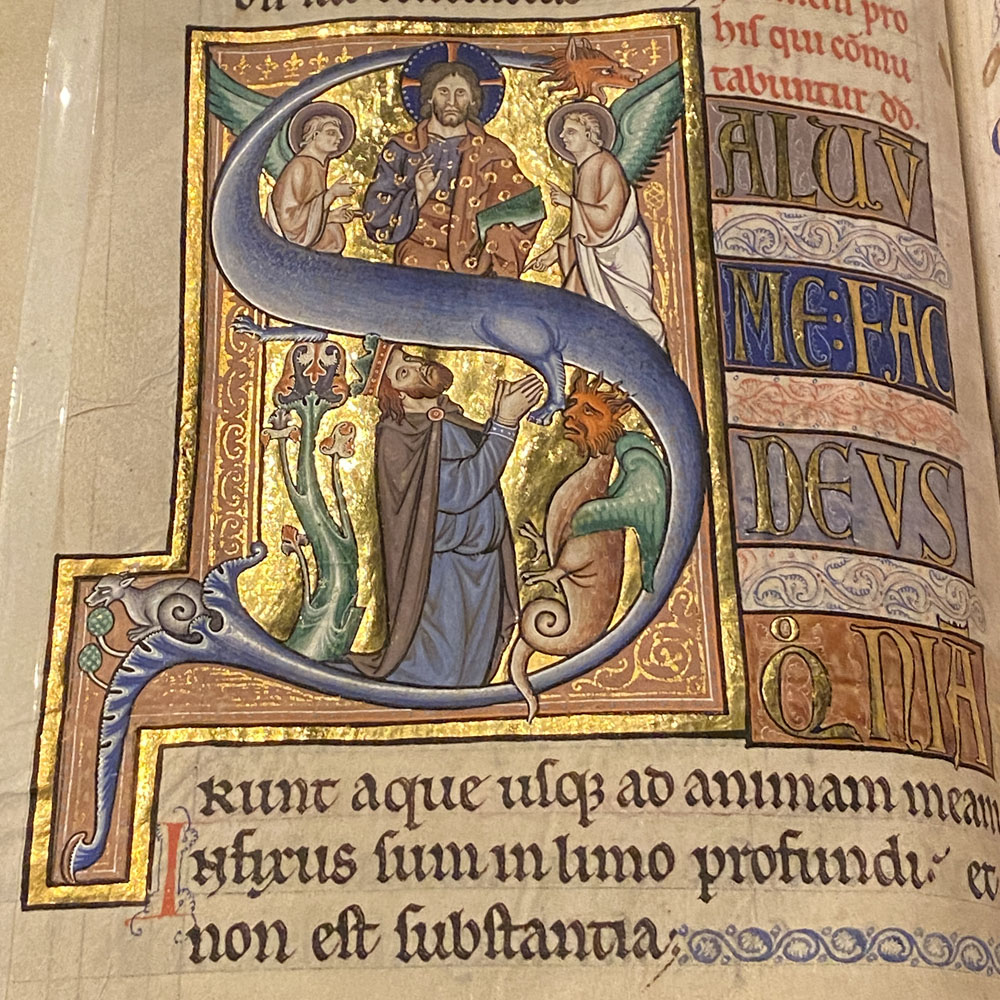 pro
his qui cōmu
tabuntur dd.
SALUV̄
ME:FAC
DEVS
Q̊NIĀ
runt aque usqꝫ ad animam meam
Infixus sum in limo profundi: et
non est substantia: